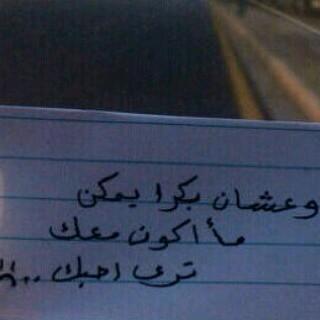 وعشان بكرا يمكن
مأ اكون معك
ترى احبك ..!!